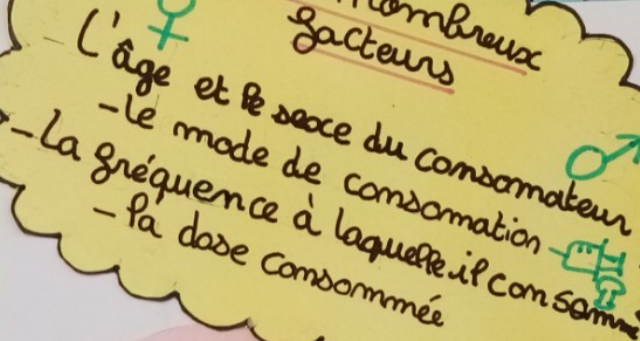 nombreux
facteurs
L'âge et le sexe du consomateur
-le mode de consomation
-La fréquence à laquelle il consomme
-la dose consommée